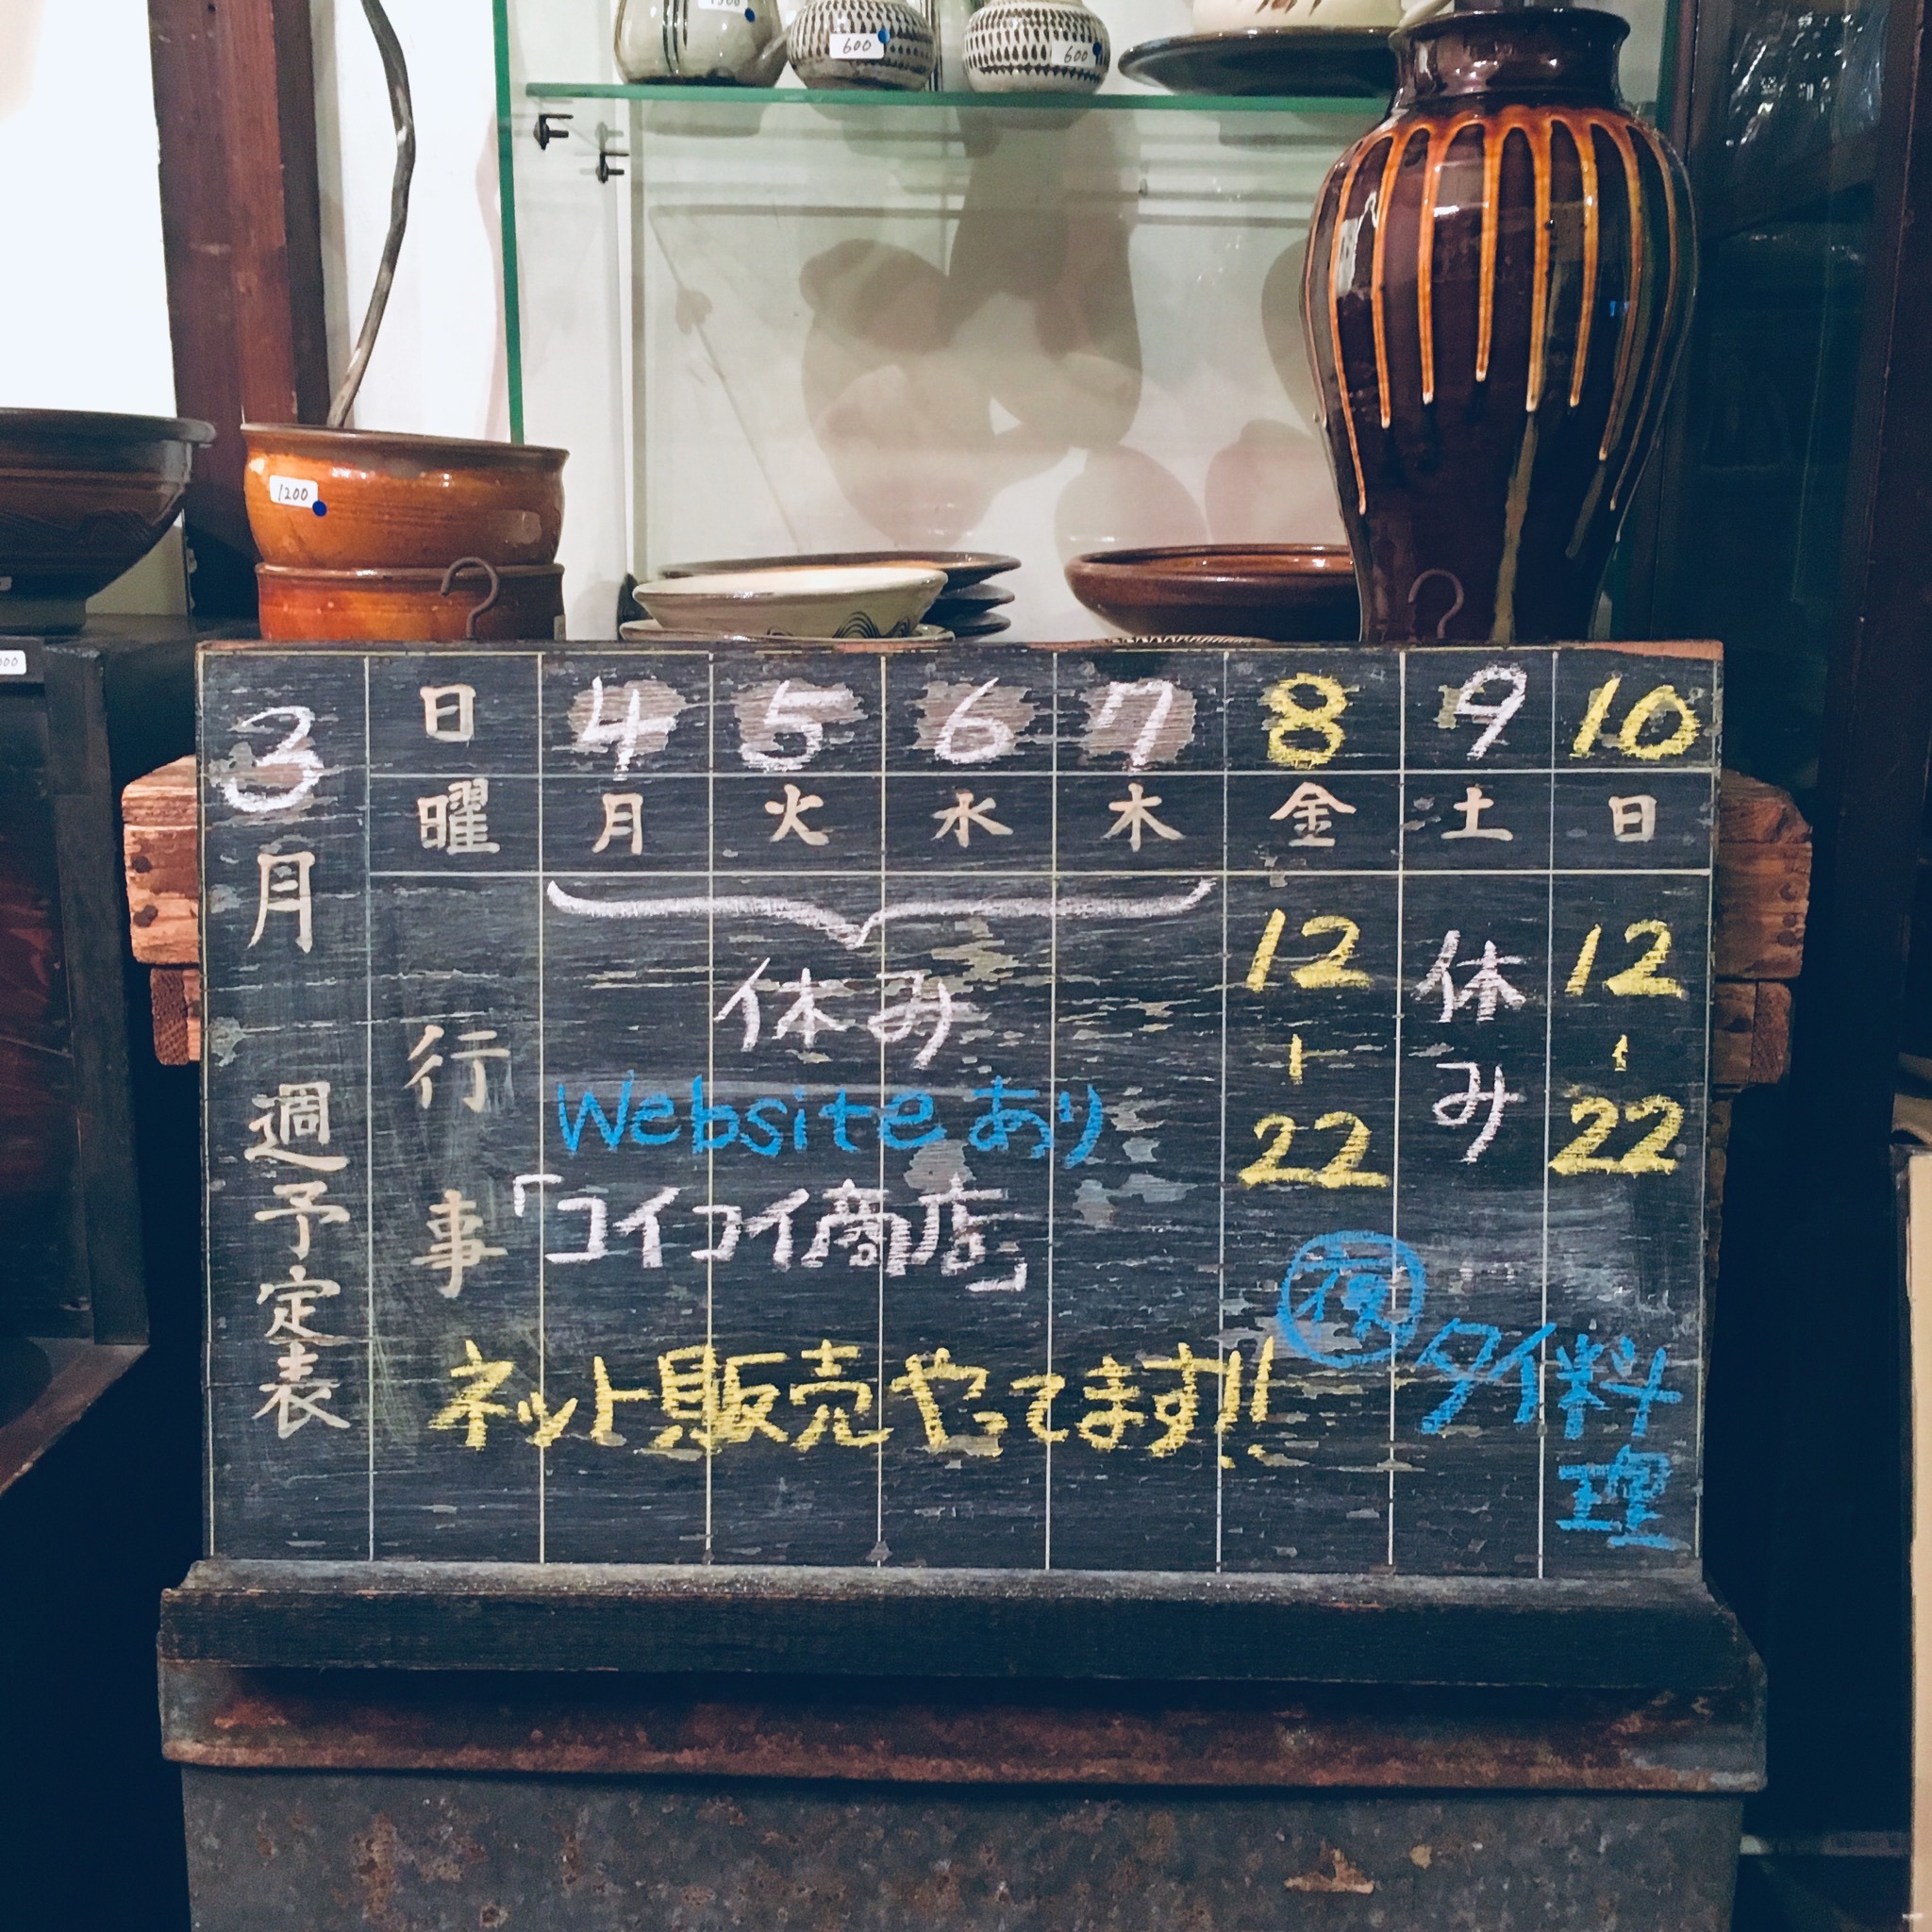 1500
600
600
1200
000
3月
週予定表
日 4 5 6 7 8 9 10
曜 月 火 水 木 金 土 日
行事
休み
12
|
22
休み
12
|
22
Websiteあり
「コイコイ商店」
ネット販売やってます!!
夜
タイ料理